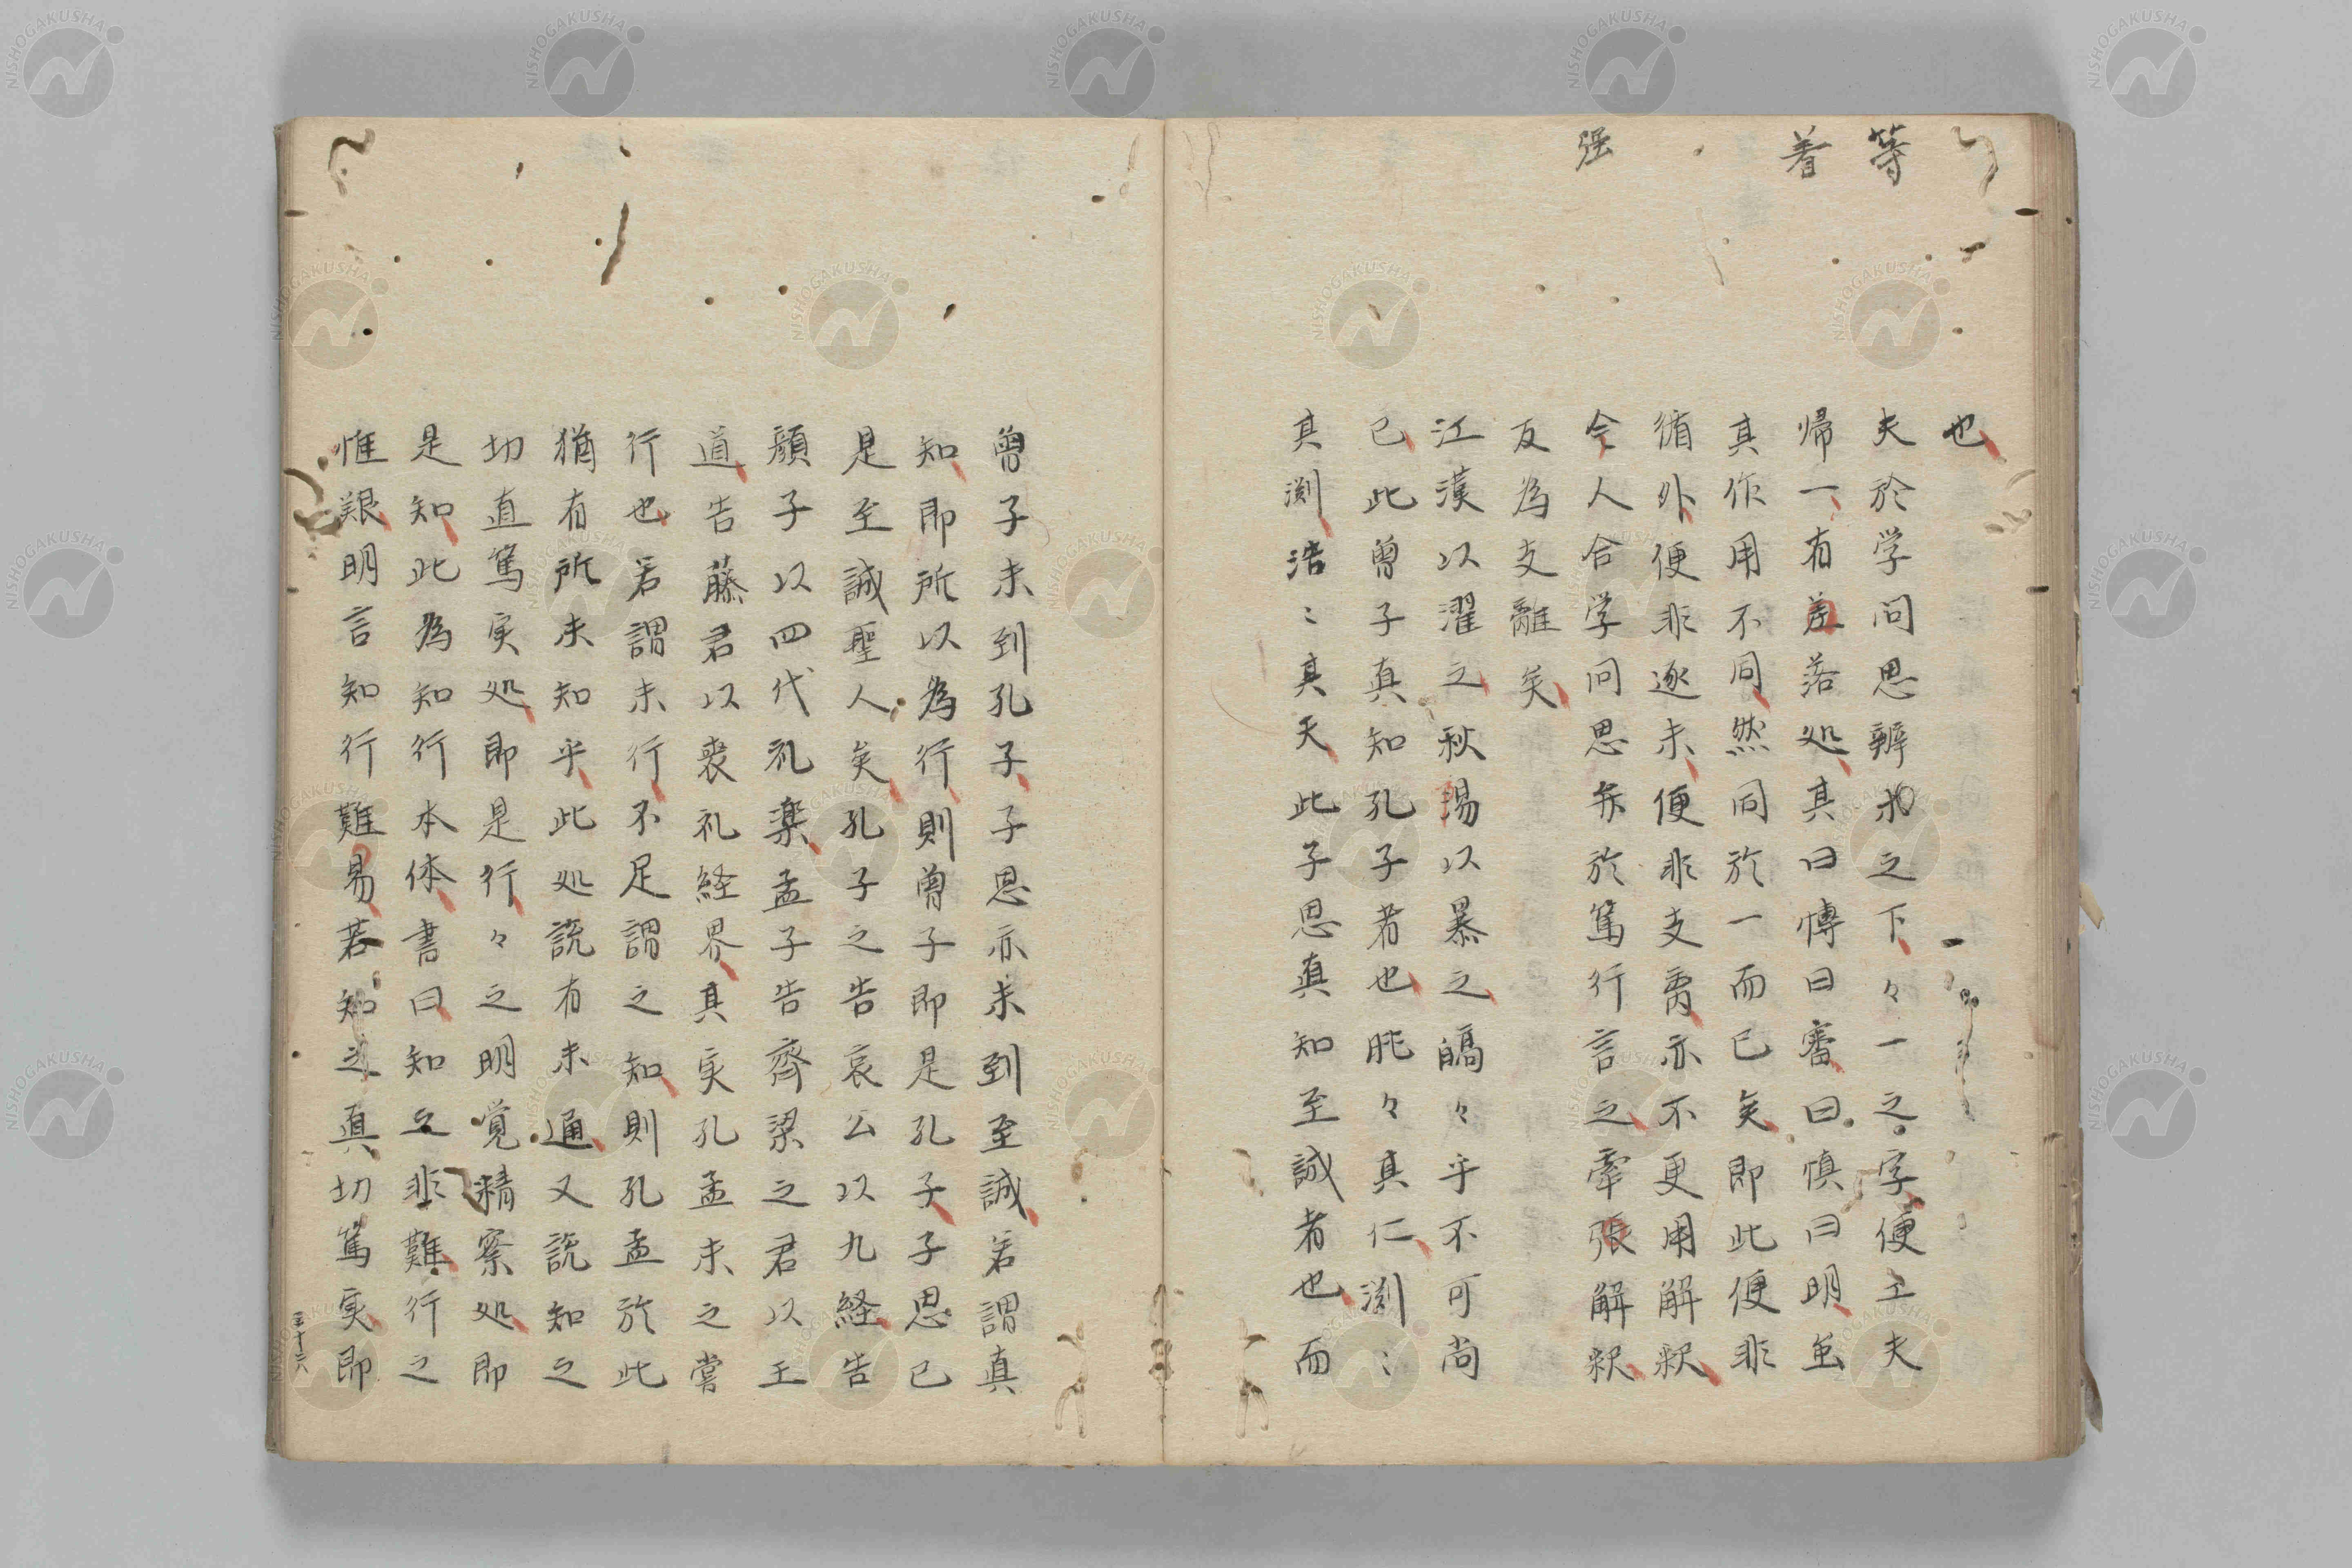 等
着
强
也
夫於学问思辨求之下々一之字便工夫
帰一有差落処其曰愽曰審曰慎曰明並
其作用不同然同於一而已矣即此便非
循外便非逐末便非支离亦不更用解釈
今人合学问思弁於篤行言之牽張解釈
反為支離矣
江漢以濯之秋陽以暴之皜々乎不可尚
已此曽子真知孔子者也肫々其仁渕〻
其渕浩〻其天此子思真知至誠者也而
曽子未到孔子子思亦未到至誠若謂真
知即所以為行則曽子即是孔子子思已
是至誠聖人矣孔子之告哀公以九経告
顔子以四代礼楽孟子告齊梁之君以王
道告藤君以喪礼経界其実孔孟未之嘗
行也若謂未行不足謂之知則孔孟於此
猶有所未知乎此処説有未通又説知之
切直篤実処即是行々之明覚精察処即
是知此為知行本体書曰知之非難行之
惟艱明言知行難易若知之真切篤実即
三十六
NISHOGAKUSHA